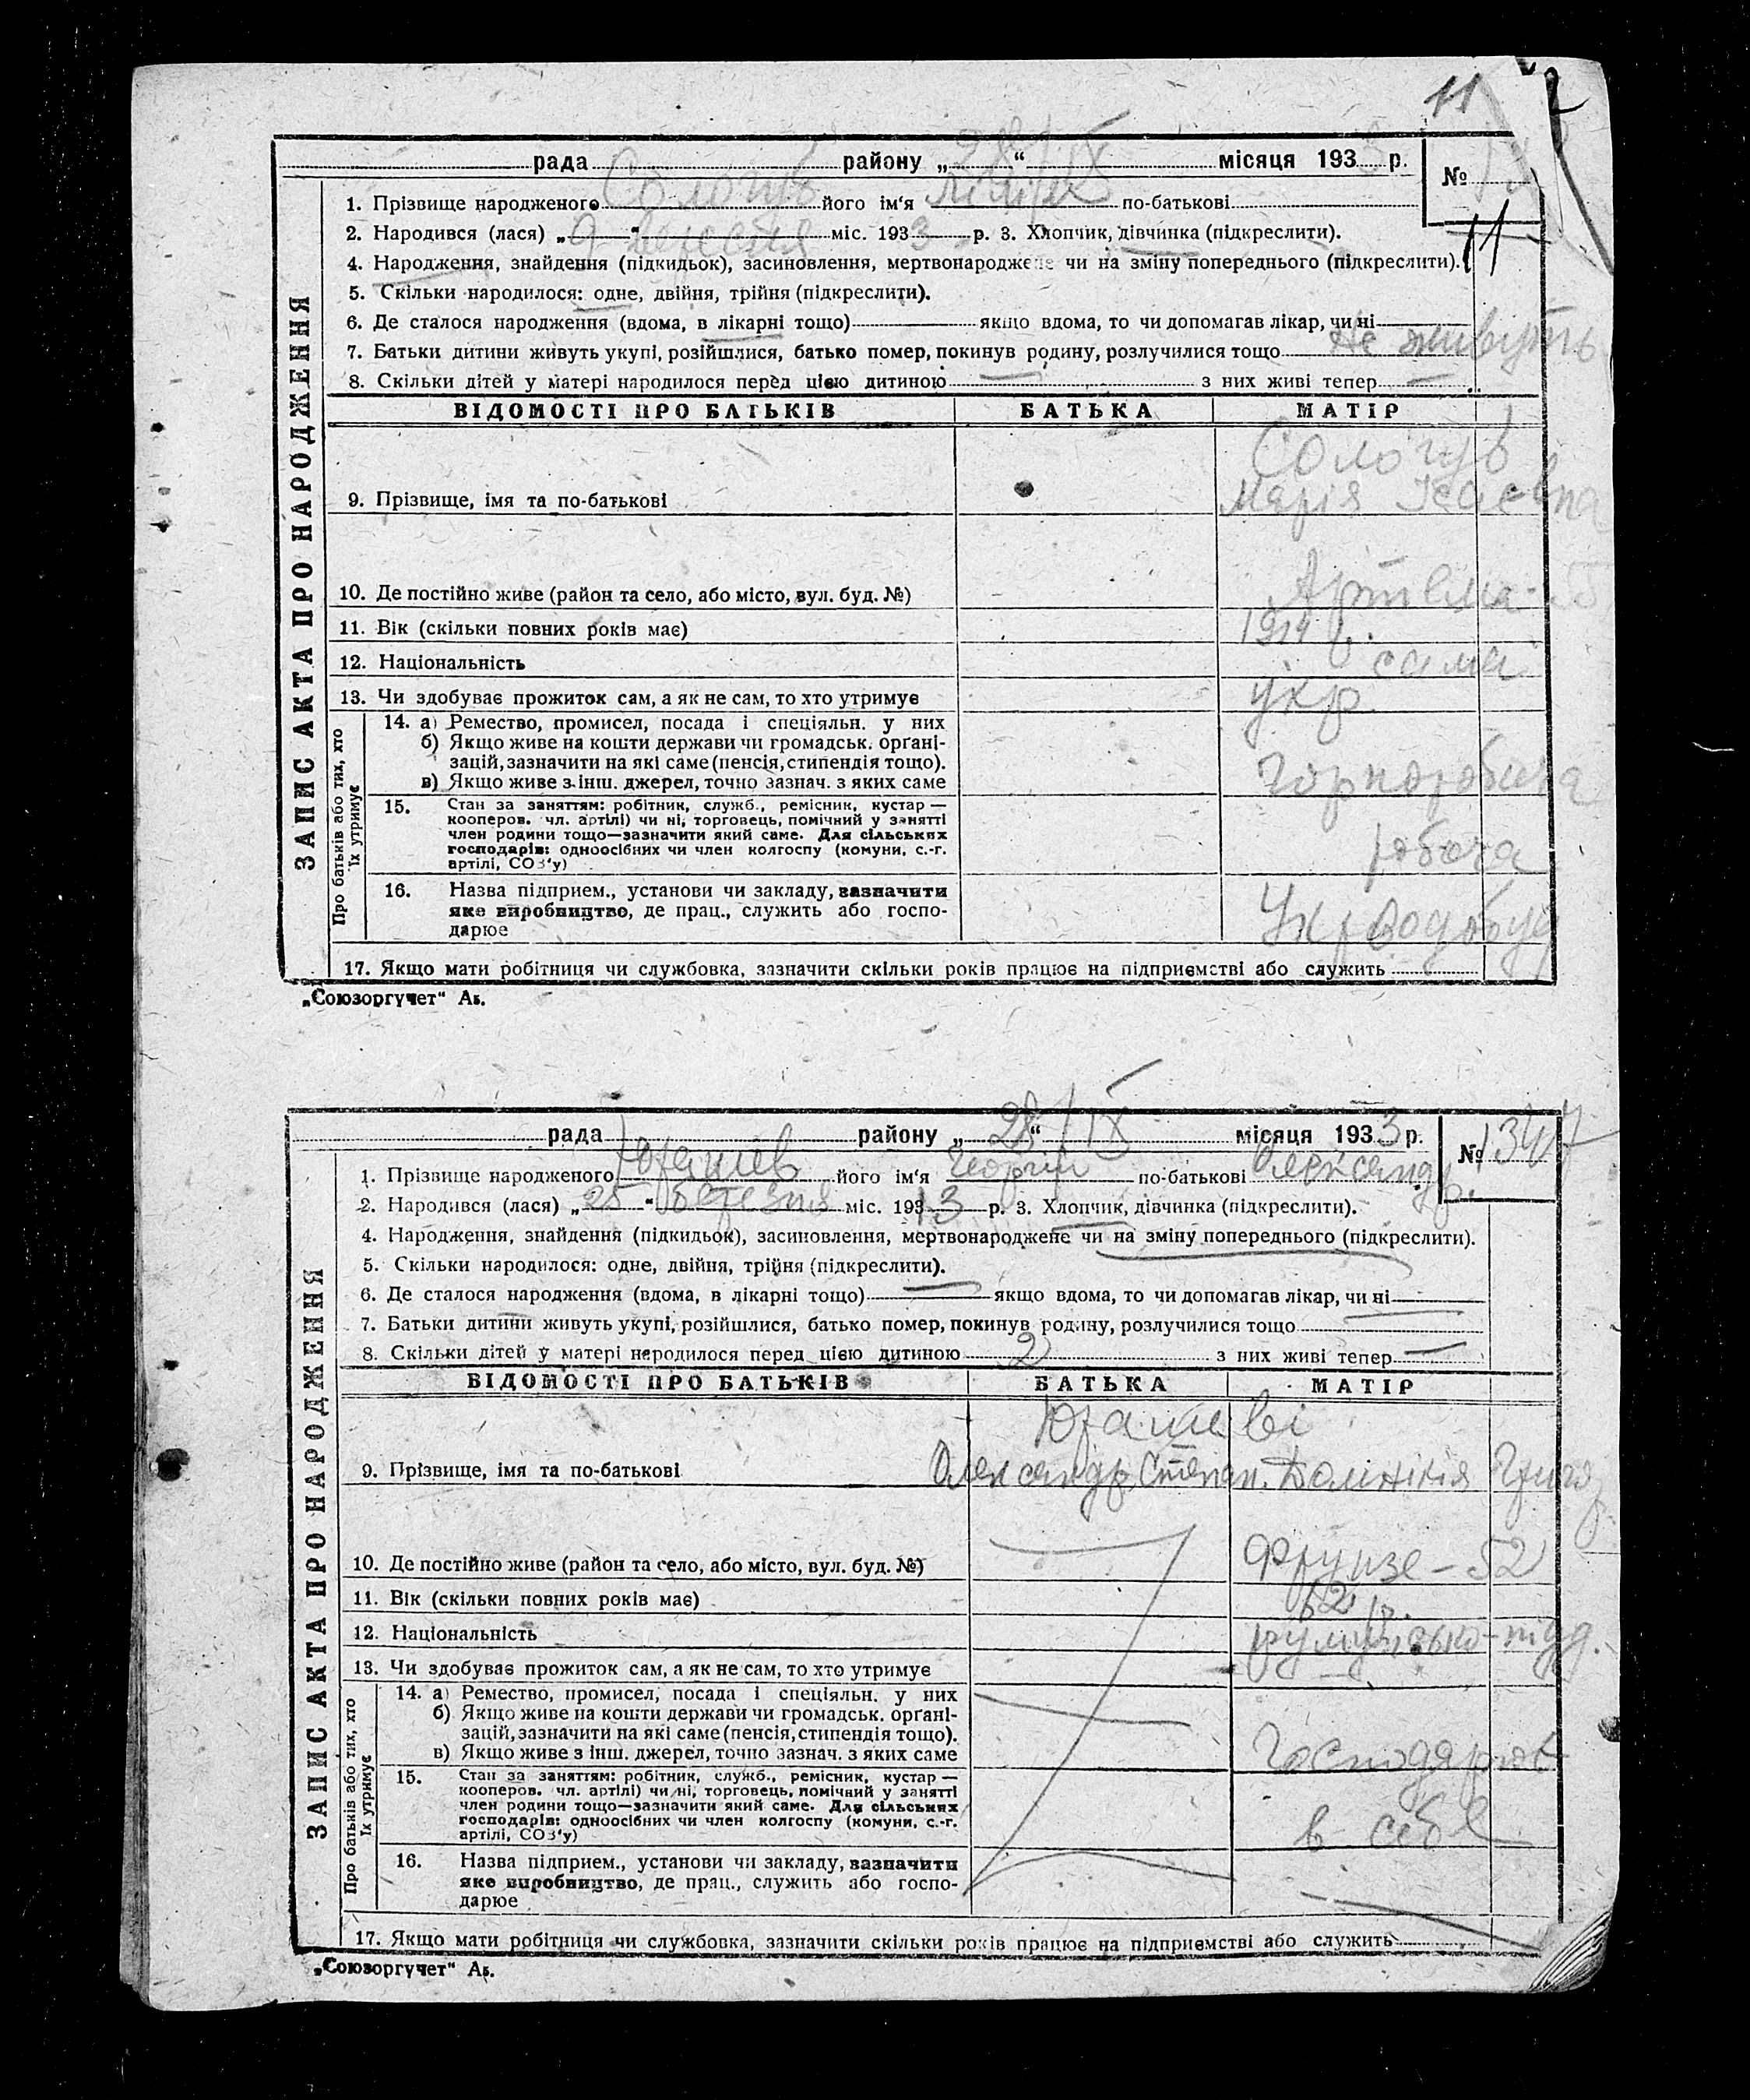 11
рада Сологуб району „ 28/IX “ місяця 193 3 р. №
1. Прізвище народженого його ім‘я по-батькові
11
2. Народився (лася) „ 9 “ вересня міс. 193 3 р. 3. Хлопчик, дівчинка (підкреслити).
4. Народження, знайдення (підкидьок), засиновлення, мертвонароджене чи на зміну попереднього (підкреслити).
5. Скільки народилося: одне, двійня, трійня (підкреслити).
6. Де сталося народження (вдома, в лікарні тощо) якщо вдома, то чи допомагав лікар, чи ні
7. Батьки дитини живуть укупі, розійшлися, батько помер, покинув родину, розлучилися тощо Не живуть
8. Скільки дітей у матері народилося перед цією дитиною — з них живі тепер —
ЗАПИС АКТА ПРО НАРОДЖЕННЯ
ВІДОМОСТІ ПРО БАТЬКІВ БАТЬКА МАТІР
Сологуб
9. Прізвище, імя та по-батькові Марія Ісаєвна
10. Де постійно живе (район та село, або місто, вул. буд. №) Артема-
11. Вік (скільки повних років має) 1914 р.
12. Національність сама
13. Чи здобуває прожиток сам, а як не сам, то хто утримує укр.
Про батьків або тих, хто їх утримує
14. а) Ремество, промисел, посада і спеціяльн. у них
б) Якщо живе на кошти держави чи громадськ. орґані-
зацій, зазначити на які саме (пенсія, стипендія тощо).
в) Якщо живе з інш. джерел, точно зазнач. з яких саме
Чорноробоча
15. Стан за заняттям: робітник, служб., ремісник, кустар —
кооперов. чл. артілі) чи ні, торговець, помічний у занятті
член родини тощо—зазначити який саме. Для сільських
господарів: одноосібних чи член колгоспу (комуни, с.-г.
артілі, СОЗ‘у) робоча
16. Назва підприєм., установи чи закладу, вазначити
яке виробництво, де прац., служить або госпо-
дарює Укрводобуд
17. Якщо мати робітниця чи службовка, зазначити скільки років працює на підприємстві або служить
„Союзоргучет“ Аб.
рада району „ 28/IX “ місяця 193 3 р. № 1347
1. Прізвище народженого Юрашев його ім‘я Георгій по-батькові Олександр.
2. Народився (лася) „ 25 “ березня міс. 193 13 р. 3. Хлопчик, дівчинка (підкреслити).
4. Народження, знайдення (підкидьок), засиновлення, мертвонароджене чи на зміну попереднього (підкреслити).
5. Скільки народилося: одне, двійня, трійня (підкреслити).
6. Де сталося народження (вдома, в лікарні тощо) — якщо вдома, то чи допомагав лікар, чи ні —
7. Батьки дитини живуть укупі, розійшлися, батько помер, покинув родину, розлучилися тощо
8. Скільки дітей у матері народилося перед цією дитиною 2 з них живі тепер —
ЗАПИС АКТА ПРО НАРОДЖЕННЯ
ВІДОМОСТІ ПРО БАТЬКІВ БАТЬКА МАТІР
Юрашеві
9. Прізвище, імя та по-батькові Олександр Степан. Домнікія Григор.
10. Де постійно живе (район та село, або місто, вул. буд. №) — Фрунзе-52
11. Вік (скільки повних років має) 52 р.
12. Національність румунсько-підд.
13. Чи здобуває прожиток сам, а як не сам, то хто утримує
Про батьків або тих, хто їх утримує
14. а) Ремество, промисел, посада і спеціяльн. у них
б) Якщо живе на кошти держави чи громадськ. орґані-
зацій, зазначити на які саме (пенсія, стипендія тощо).
в) Якщо живе з інш. джерел, точно зазнач. з яких саме
Господарює
15. Стан за заняттям: робітник, служб., ремісник, кустар —
кооперов. чл. артілі) чи ні, торговець, помічний у занятті
член родини тощо—зазначити який саме. Для сільських
господарів: одноосібних чи член колгоспу (комуни, с.-г.
артілі, СОЗ‘у) в себе
16. Назва підприєм., установи чи закладу, вазначити
яке виробництво, де прац., служить або госпо-
дарює
17. Якщо мати робітниця чи службовка, зазначити скільки років працює на підприємстві або служить
„Союзоргучет“ Аб.